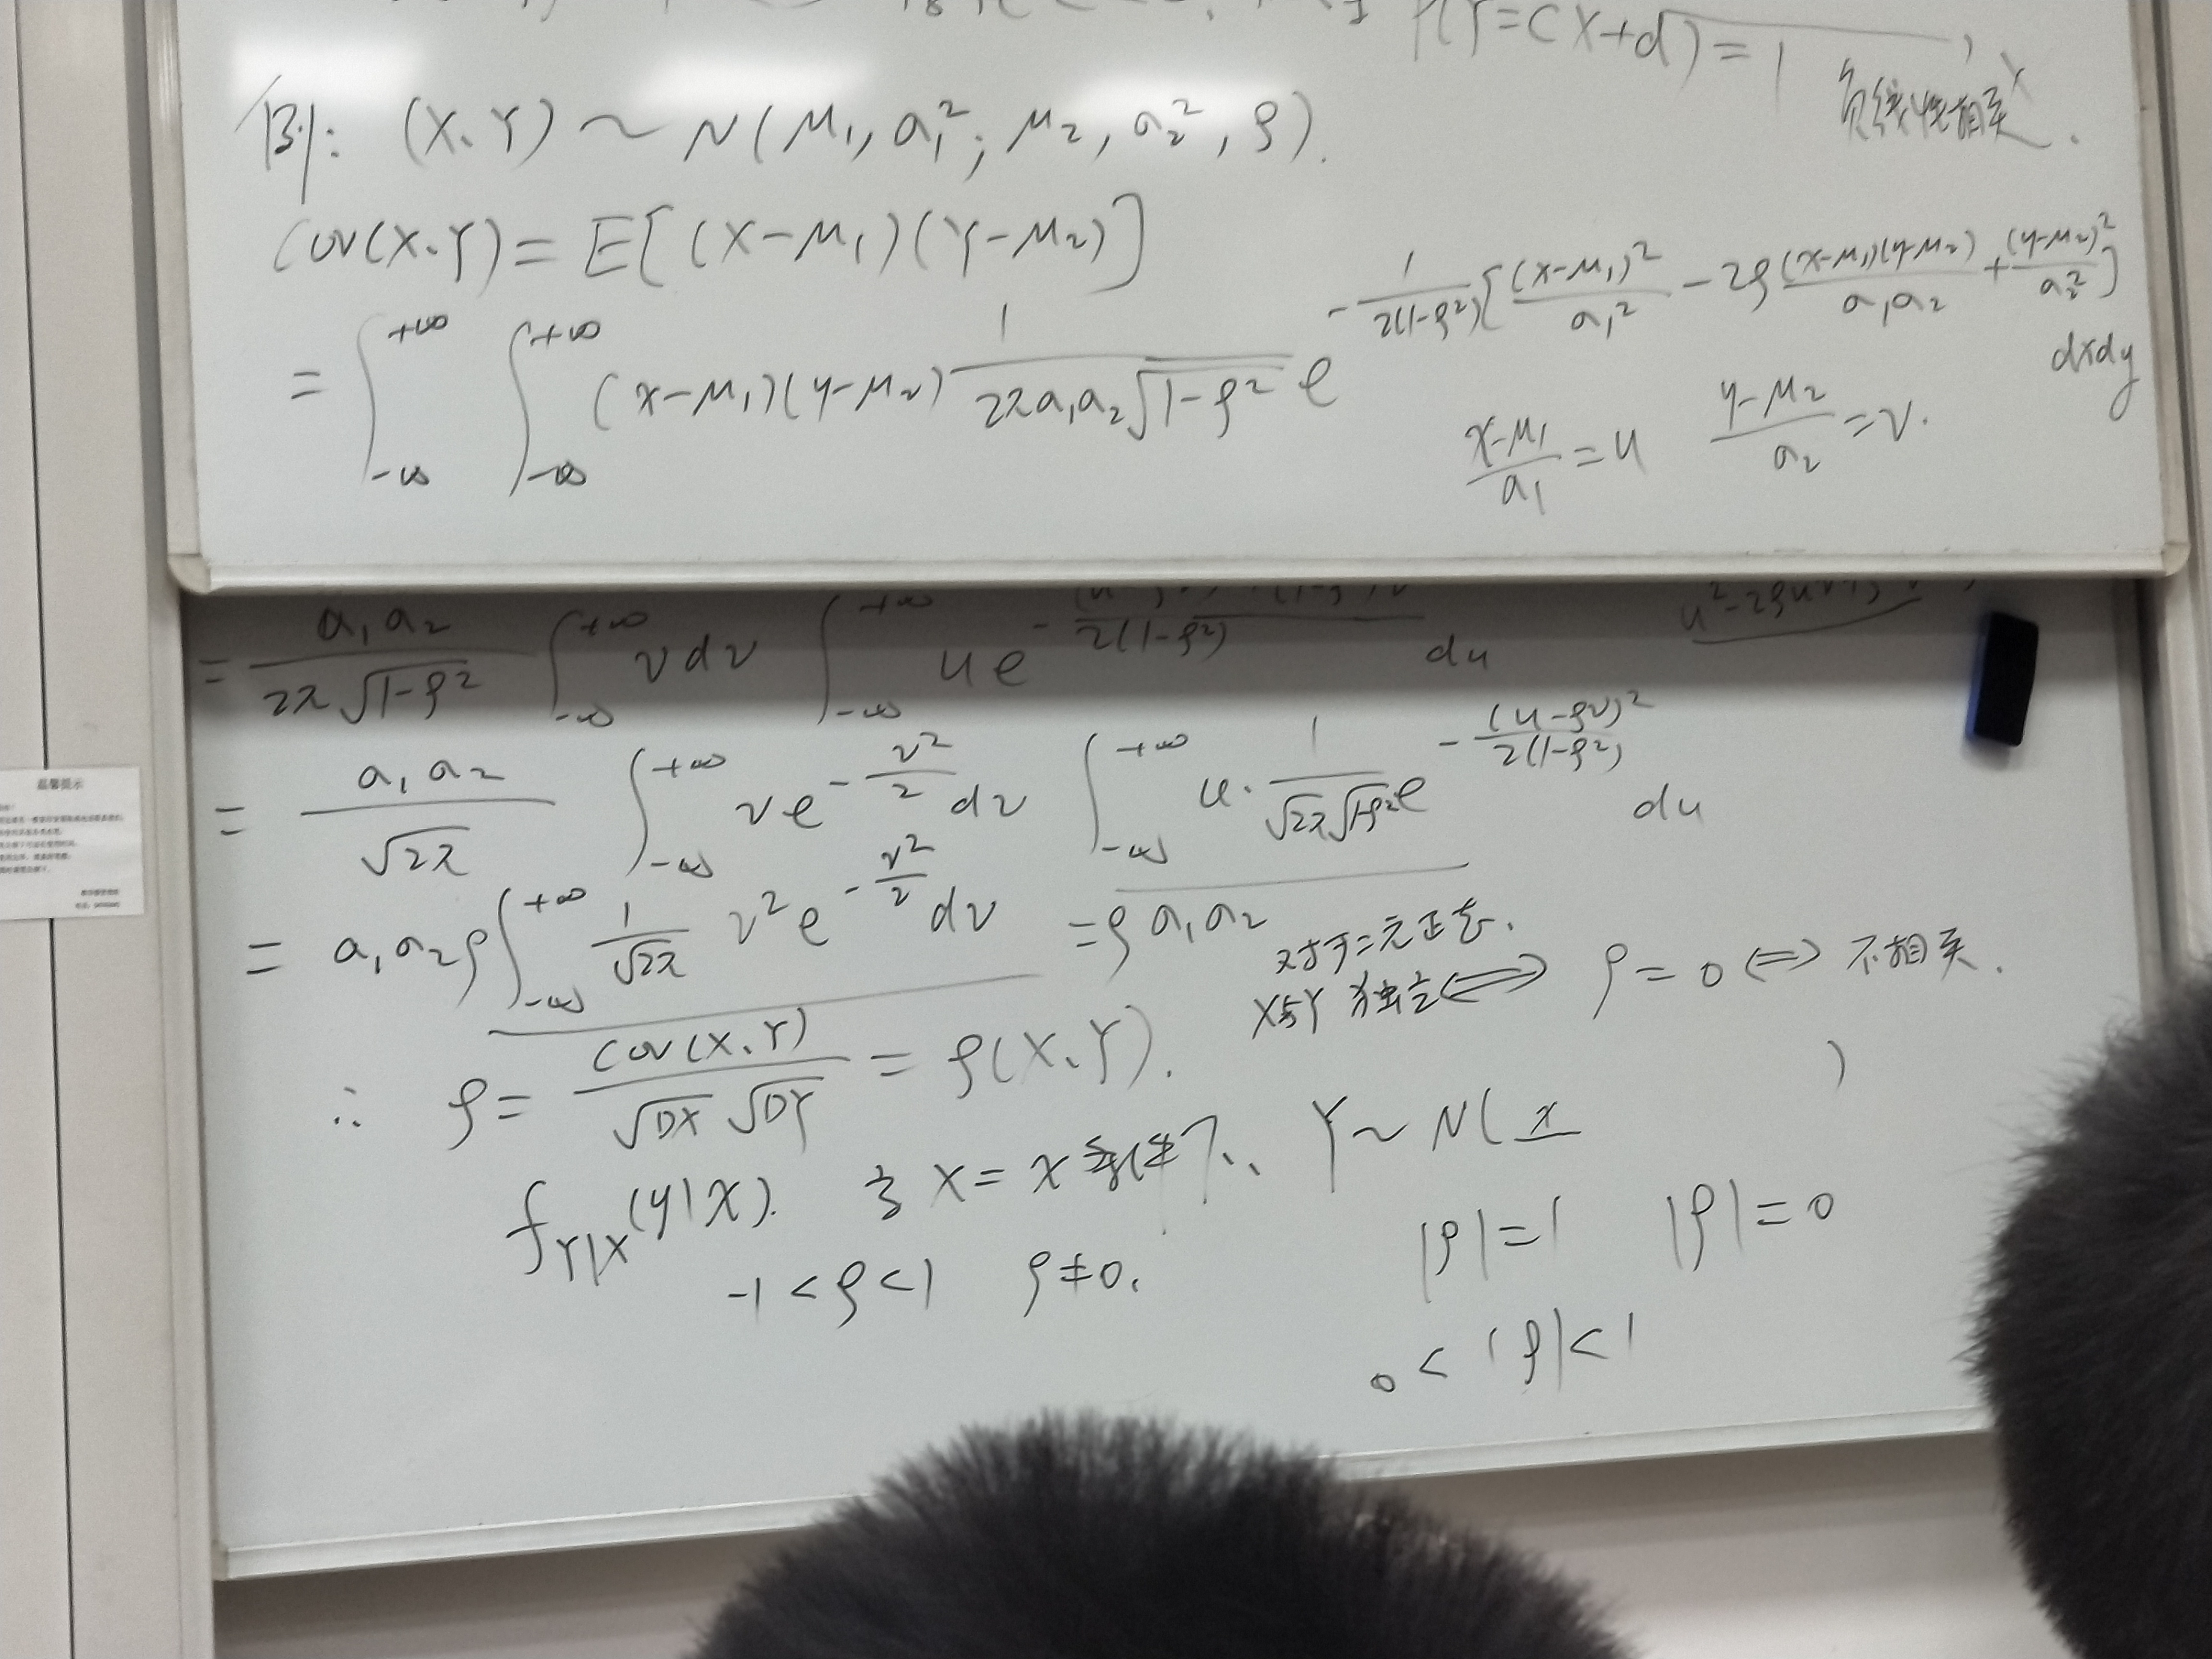 P(Y=CX+d)=1
负线性相关.
例: (X、Y) ~ N(μ₁, σ₁²; μ₂, σ₂², ρ).
Cov(X、Y) = E[(X-μ₁)(Y-μ₂)]
= ∫_{-∞}^{+∞} ∫_{-∞}^{+∞} (x-μ₁)(y-μ₂) 1/(2πσ₁σ₂√(1-ρ²)) e^{-1/(2(1-ρ²)) [(x-μ₁)²/σ₁² - 2ρ (x-μ₁)(y-μ₂)/(σ₁σ₂) + (y-μ₂)²/σ₂²]} dxdy
(x-μ₁)/σ₁ = u (y-μ₂)/σ₂ = v.
= σ₁σ₂/(2π√(1-ρ²)) ∫_{-∞}^{+∞} v dv ∫_{-∞}^{+∞} u e^{- /(2(1-ρ²))} du
= σ₁σ₂/√2π ∫_{-∞}^{+∞} v e^{-v²/2} dv ∫_{-∞}^{+∞} u · 1/(√2π √(1-ρ²)) e^{-(u-ρv)²/(2(1-ρ²))} du
= σ₁σ₂ρ ∫_{-∞}^{+∞} 1/√2π v² e^{-v²/2} dv = ρσ₁σ₂
对于二元正态.
X与Y 独立 ⟺ ρ = 0 ⟺ 不相关.
∴ ρ = Cov(X、Y)/(√DX √DY) = ρ(X、Y).
f_{Y|X}(y|x). 当 X = x 条件下、 Y ~ N( x )
-1 < ρ < 1 ρ ≠ 0.
|ρ| = 1 |ρ| = 0
0 < |ρ| < 1